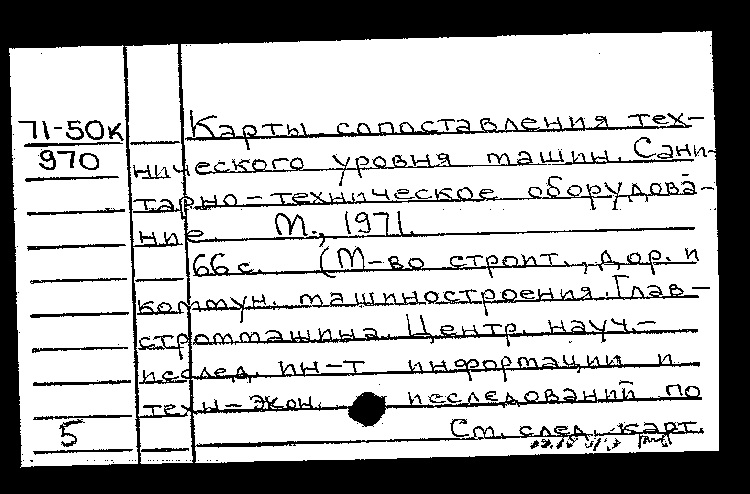 71-50к Карты сопоставления тех-
970 нического уровня машин. Сани-
тарно-техническое оборудова-
ние. М., 1971.
66 с. (М-во строит., дор. и
коммун. машиностроения. Глав-
строммашина. Центр. науч.-
исслед. ин-т информации и
техн-экон. исследований по
5 См. след. карт.